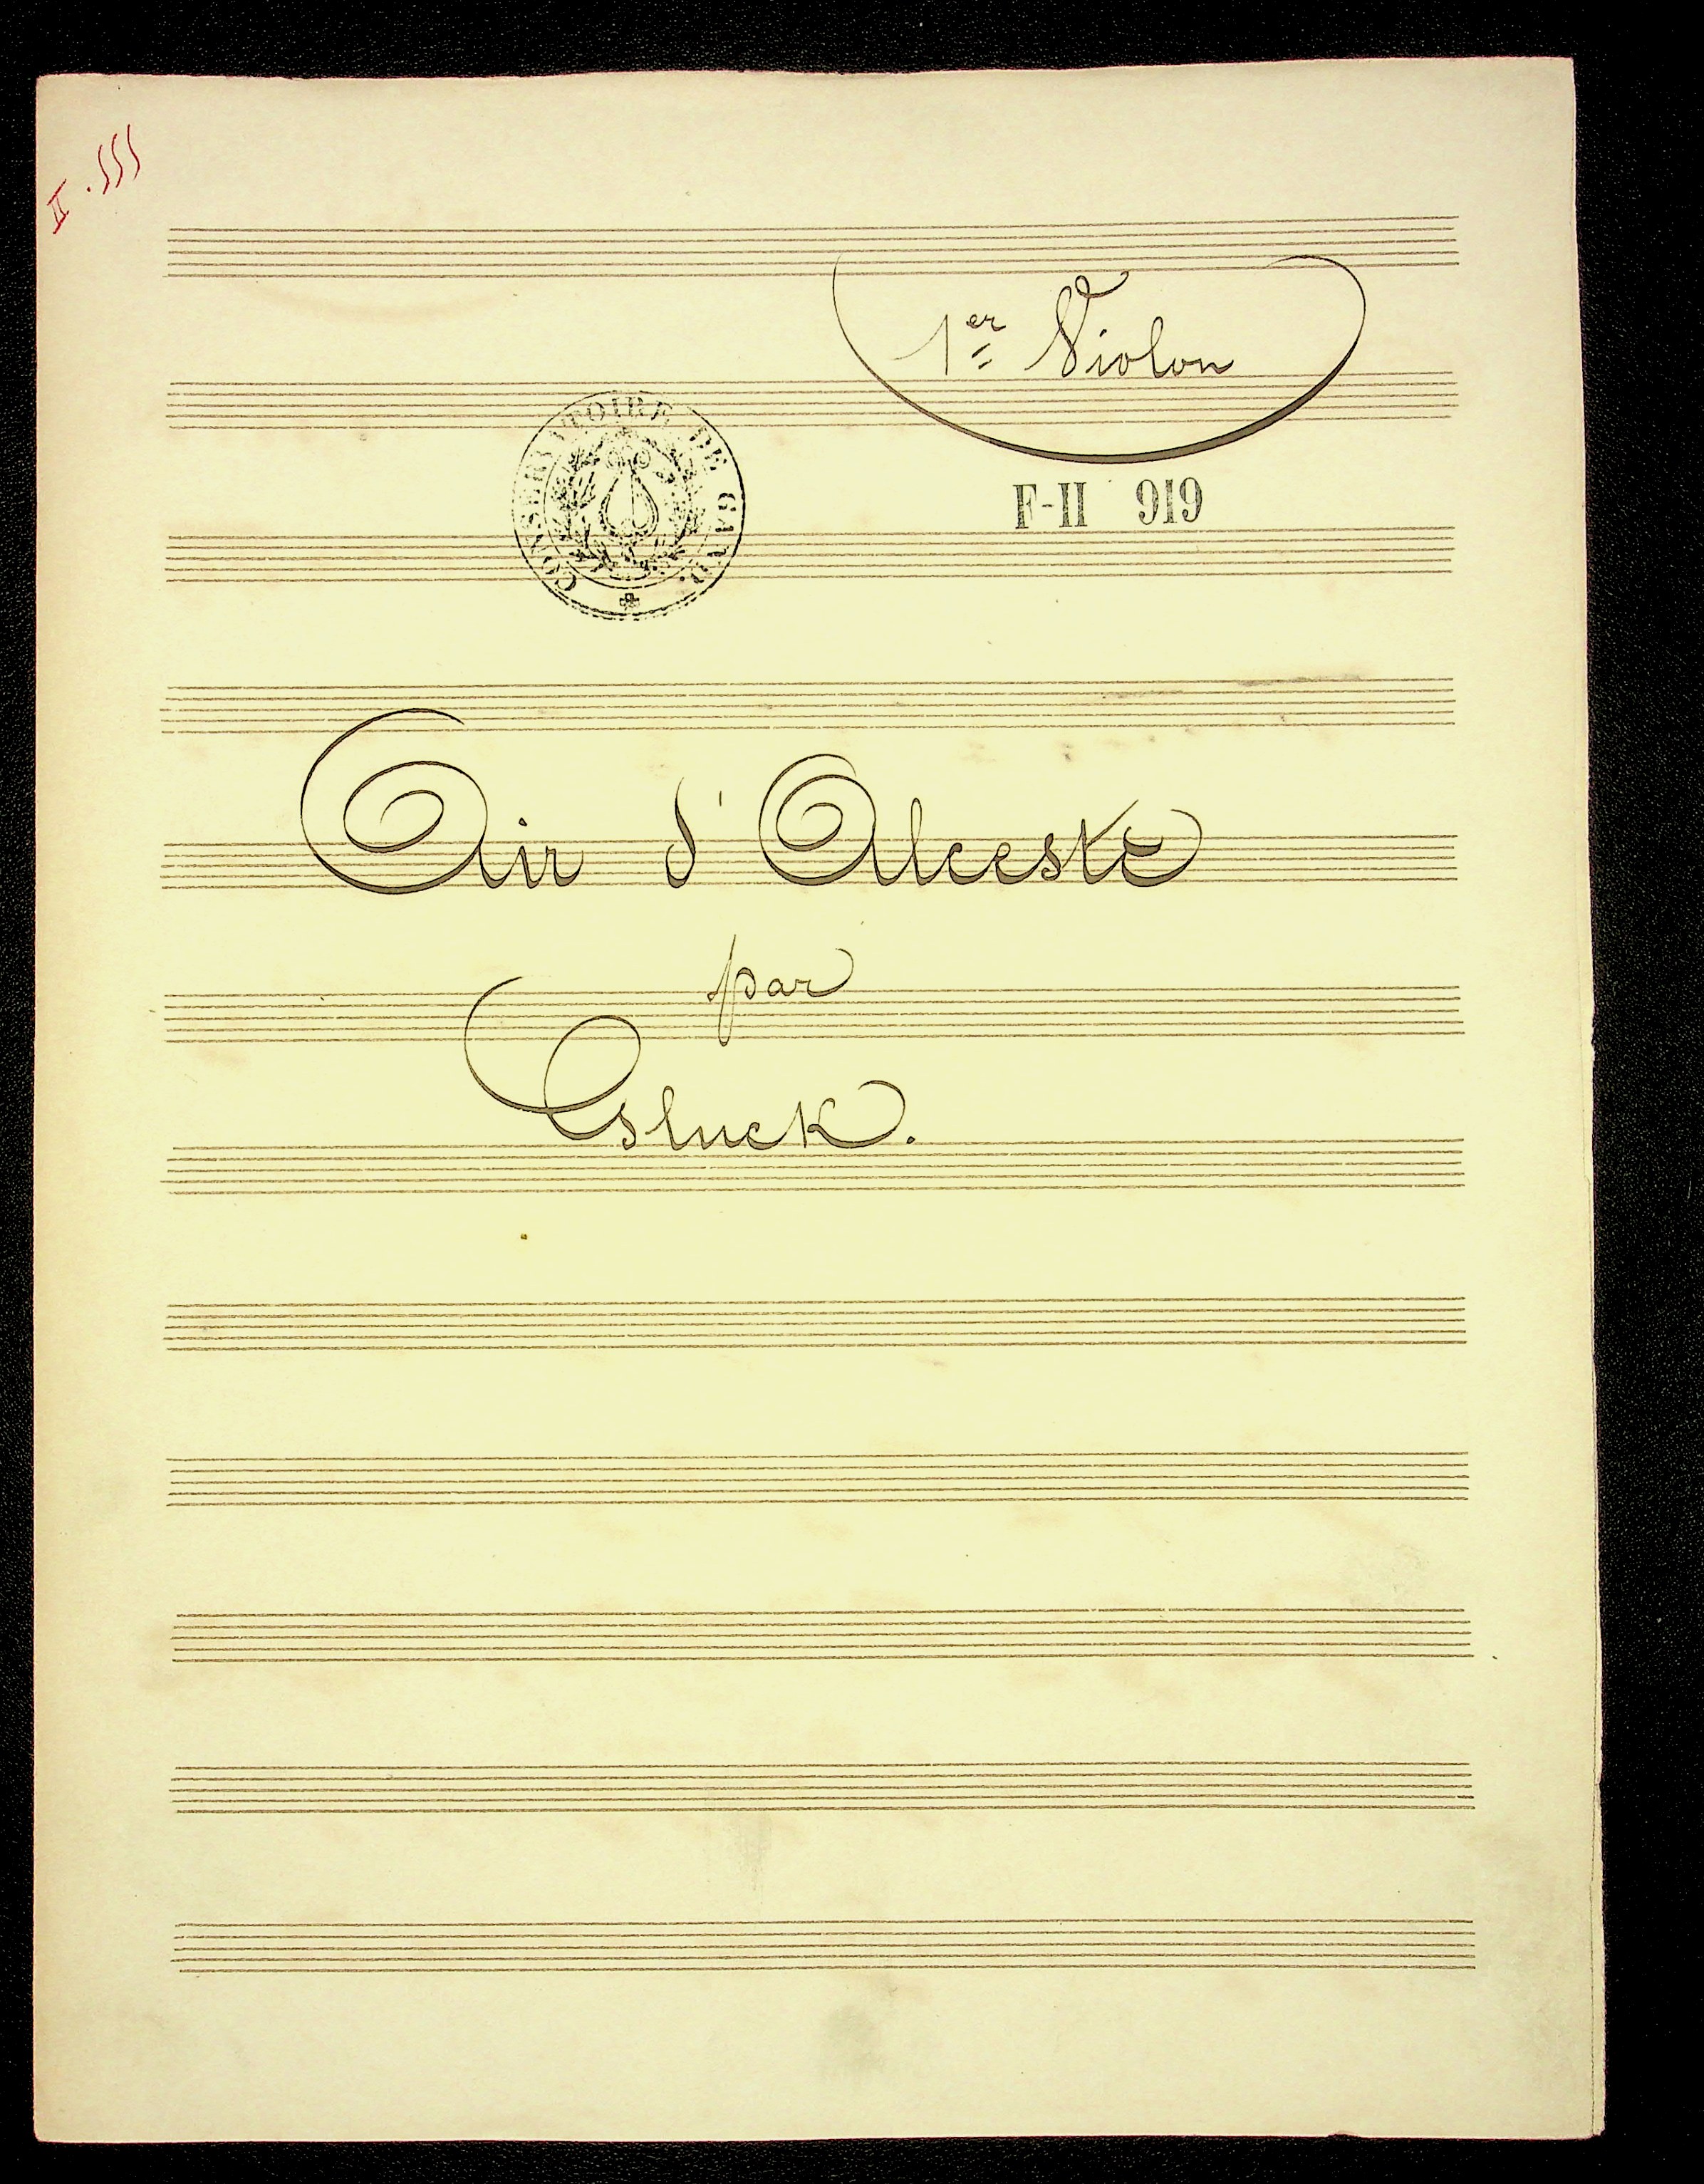 II. 555
1er Violon
CONSERVATOIRE DE GAND
F-II 919
Air d'Alceste
par
Gluck.